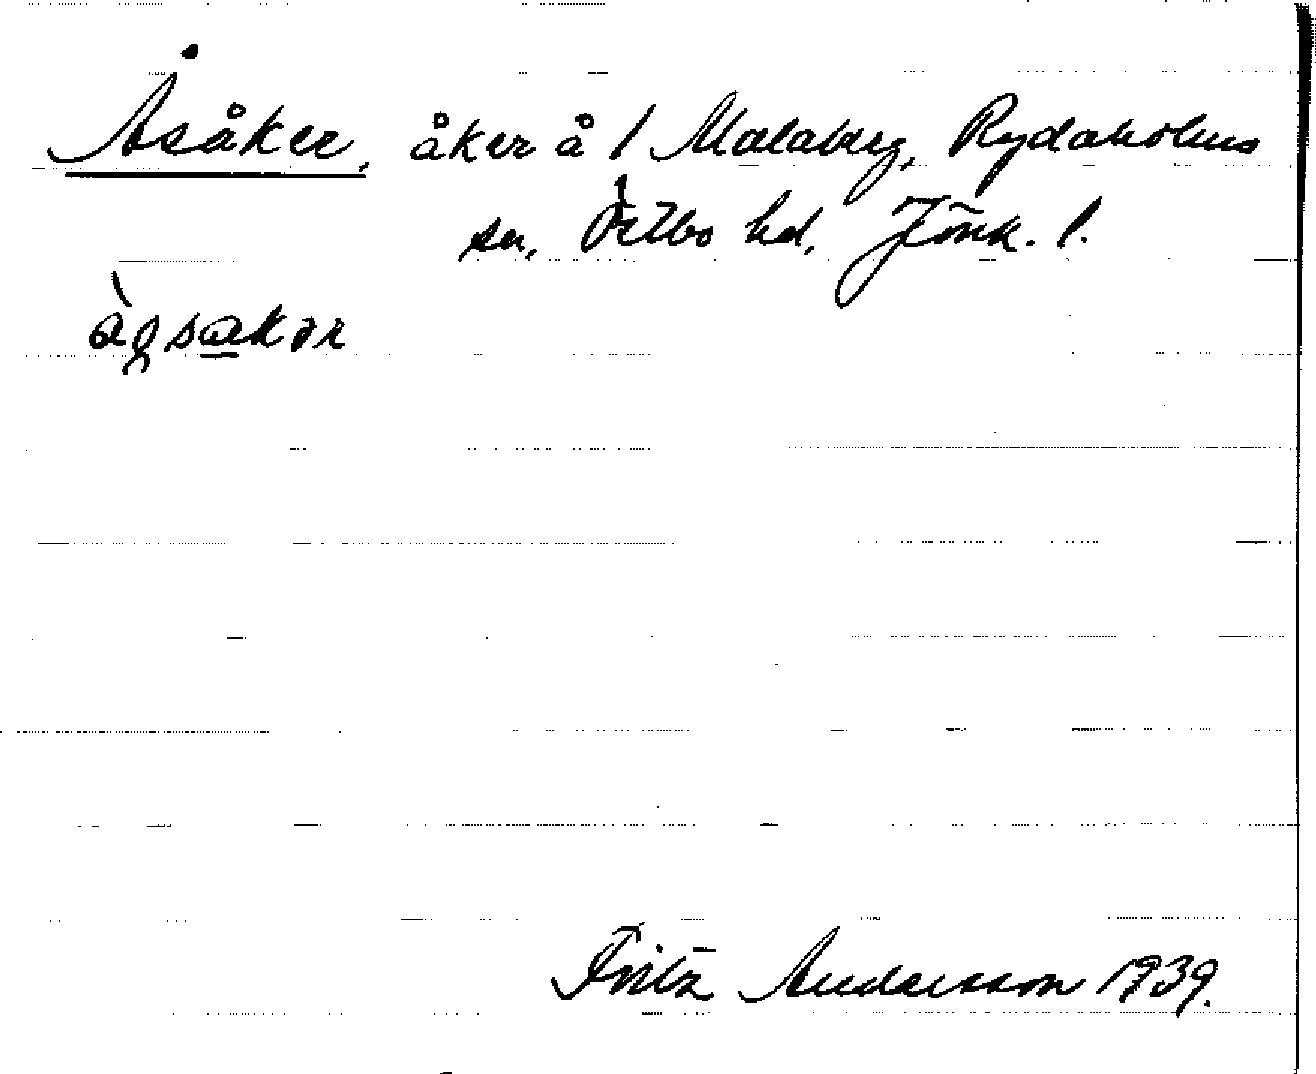 Åsåker, åker å / Malaberg, Rydaholms
sn, Östbo hd, Jönk. l.
Fritz Andersson 1939.